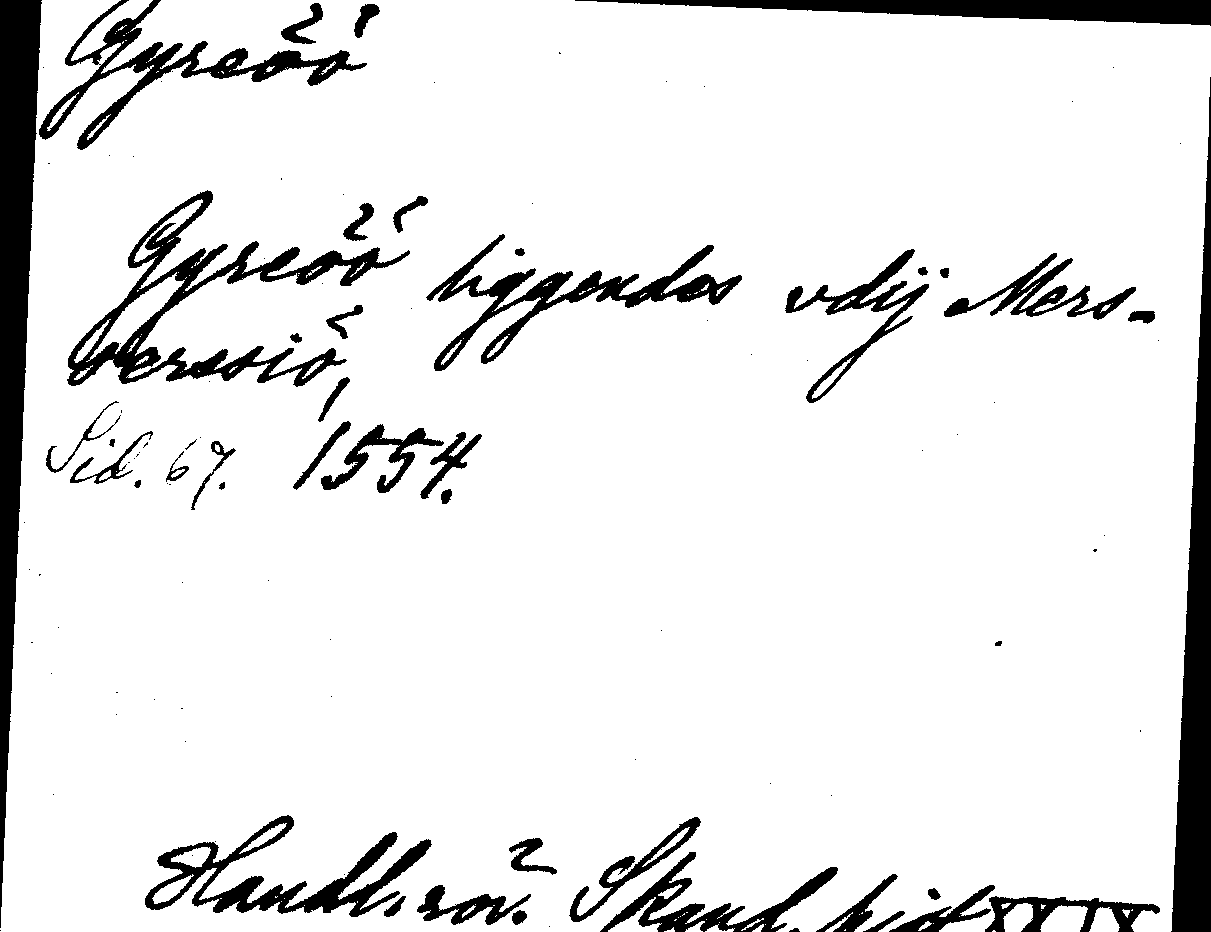 Gyreöö
Gyreöö liggendes vdij Mers-
serssiö,
Sid. 67. 1554.
Handl. rör. Skand. hist XXIX